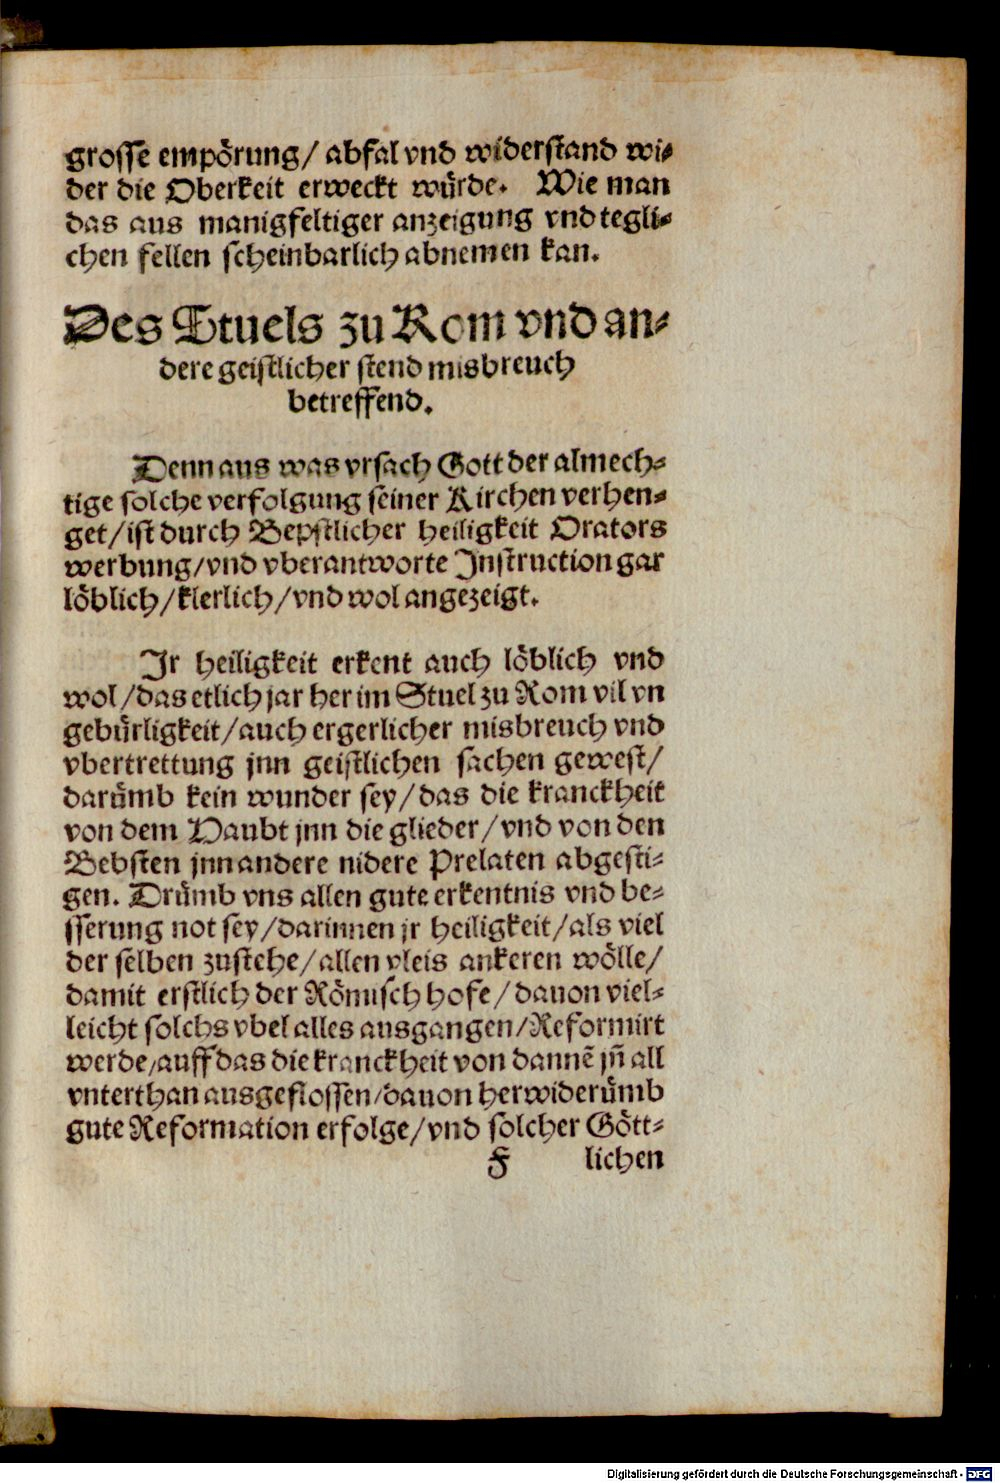 grosse empörung/ abfal vnd widerstand wi-
der die Oberkeit erweckt würde. Wie man
das aus manigfeltiger anzeigung vnd tegli-
chen fellen scheinbarlich abnemen kan.
Des Stuels zu Rom vnd an-
dere geistlicher stend misbreuch
betreffend.
Denn aus was vrsach Gott der almech-
tige solche verfolgung seiner Kirchen verhen-
get/ ist durch Bepstlicher heiligkeit Orators
werbung/ vnd vberantworte Instruction gar
löblich/ klerlich/ vnd wol angezeigt.
Ir heiligkeit erkent auch löblich vnd
wol/ das etlich jar her im Stuel zu Rom vil vn
gebürligkeit/ auch ergerlicher misbreuch vnd
vbertrettung jnn geistlichen sachen gewest/
darümb kein wunder sey/ das die kranckheit
von dem Haubt jnn die glieder/ vnd von den
Bebsten jnn andere nidere Prelaten abgesti-
gen. Drümb vns allen gute erkentnis vnd be-
sserung not sey/ darinnen jr heiligkeit/ als viel
der selben zustehe/ allen vleis ankeren wölle/
damit erstlich der Römisch hofe/ dauon viel-
leicht solchs vbel alles ausgangen/ Reformirt
werde/ auff das die kranckheit von dannē jn̄ all
vnterthan ausgeflossen/ dauon herwiderümb
gute Reformation erfolge/ vnd solcher Gött-
F lichen
Digitalisierung gefördert durch die Deutsche Forschungsgemeinschaft - DFG